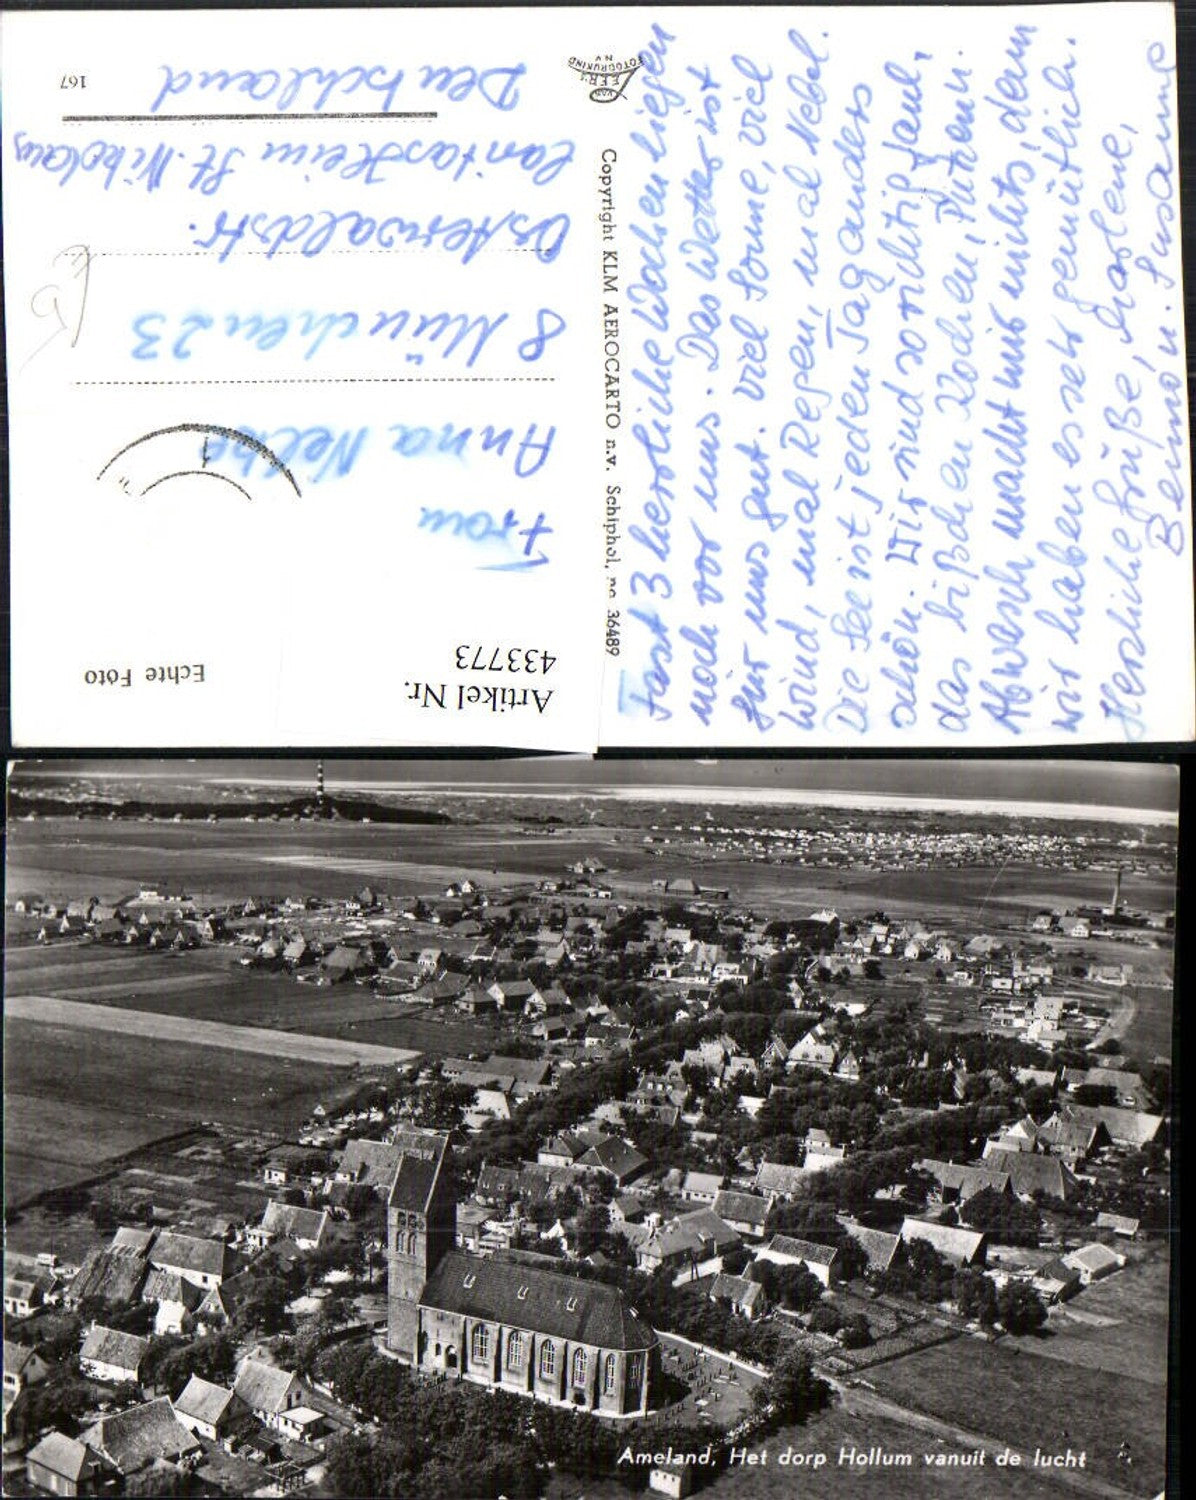 Fast 3 herrliche Wochen liegen
noch vor uns. Das Wetter ist
für uns gut. Viel Sonne, viel
Wind, mal Regen, mal Nebel.
Die See ist jeden Tag anders
schön. Wir sind so richtig faul,
das bißchen Kochen, Putzen u.
Abwasch macht mir nichts, denn
wir haben es sehr gemütlich.
Herzliche Grüße,
Benno u. Susanne
Copyright KLM AEROCARTO n.v. Schiphol, no 36489
VAN LEER'S
FOTODRUKIND
N.V.
Echte Foto
Artikel Nr.
433773
Frau
Anna
8 München 23
Osterwaldstr.
Caritasheim St. Nikolaus
Deutschland
167
Ameland, Het dorp Hollum vanuit de lucht